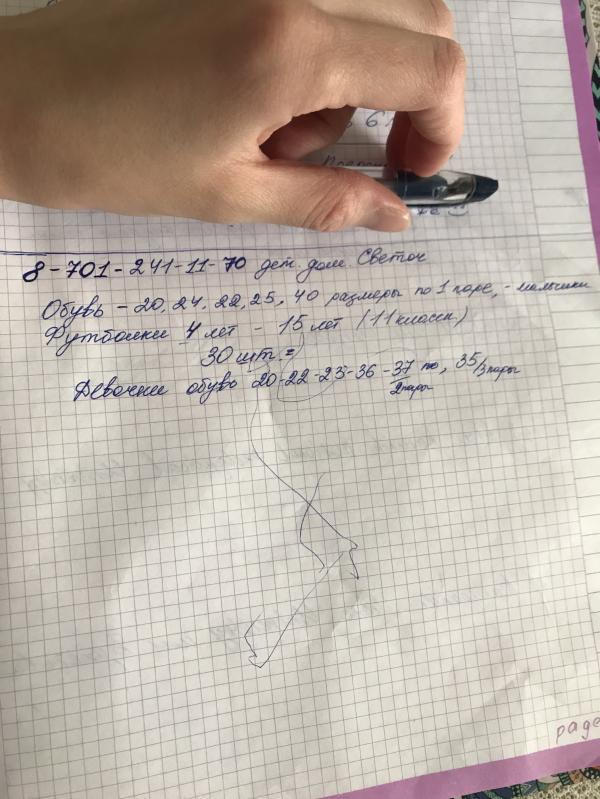 6
8-701-241-11-70 дет. дом. Светоч
Обувь - 20, 24, 22, 25, 40 размеры по 1 паре, - мальчики
Футболки 4 лет - 15 лет (11 класс)
30 шт. =
Девочки обувь 20-22-23-36-37 по, 35/3 пары
2 пары
page